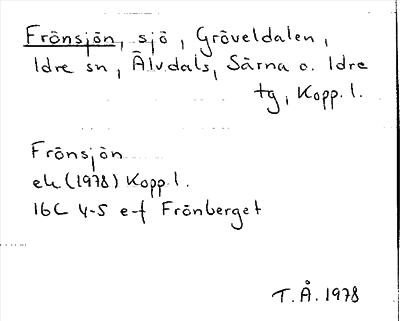 Frönsjön, sjö, Gröveldalen,
Idre sn, Älvdals, Särna o. Idre
tg, Kopp. l.
Frönsjön
ek (1978) Kopp. l.
16C 4-5 e-f Frönberget
T. Å. 1978